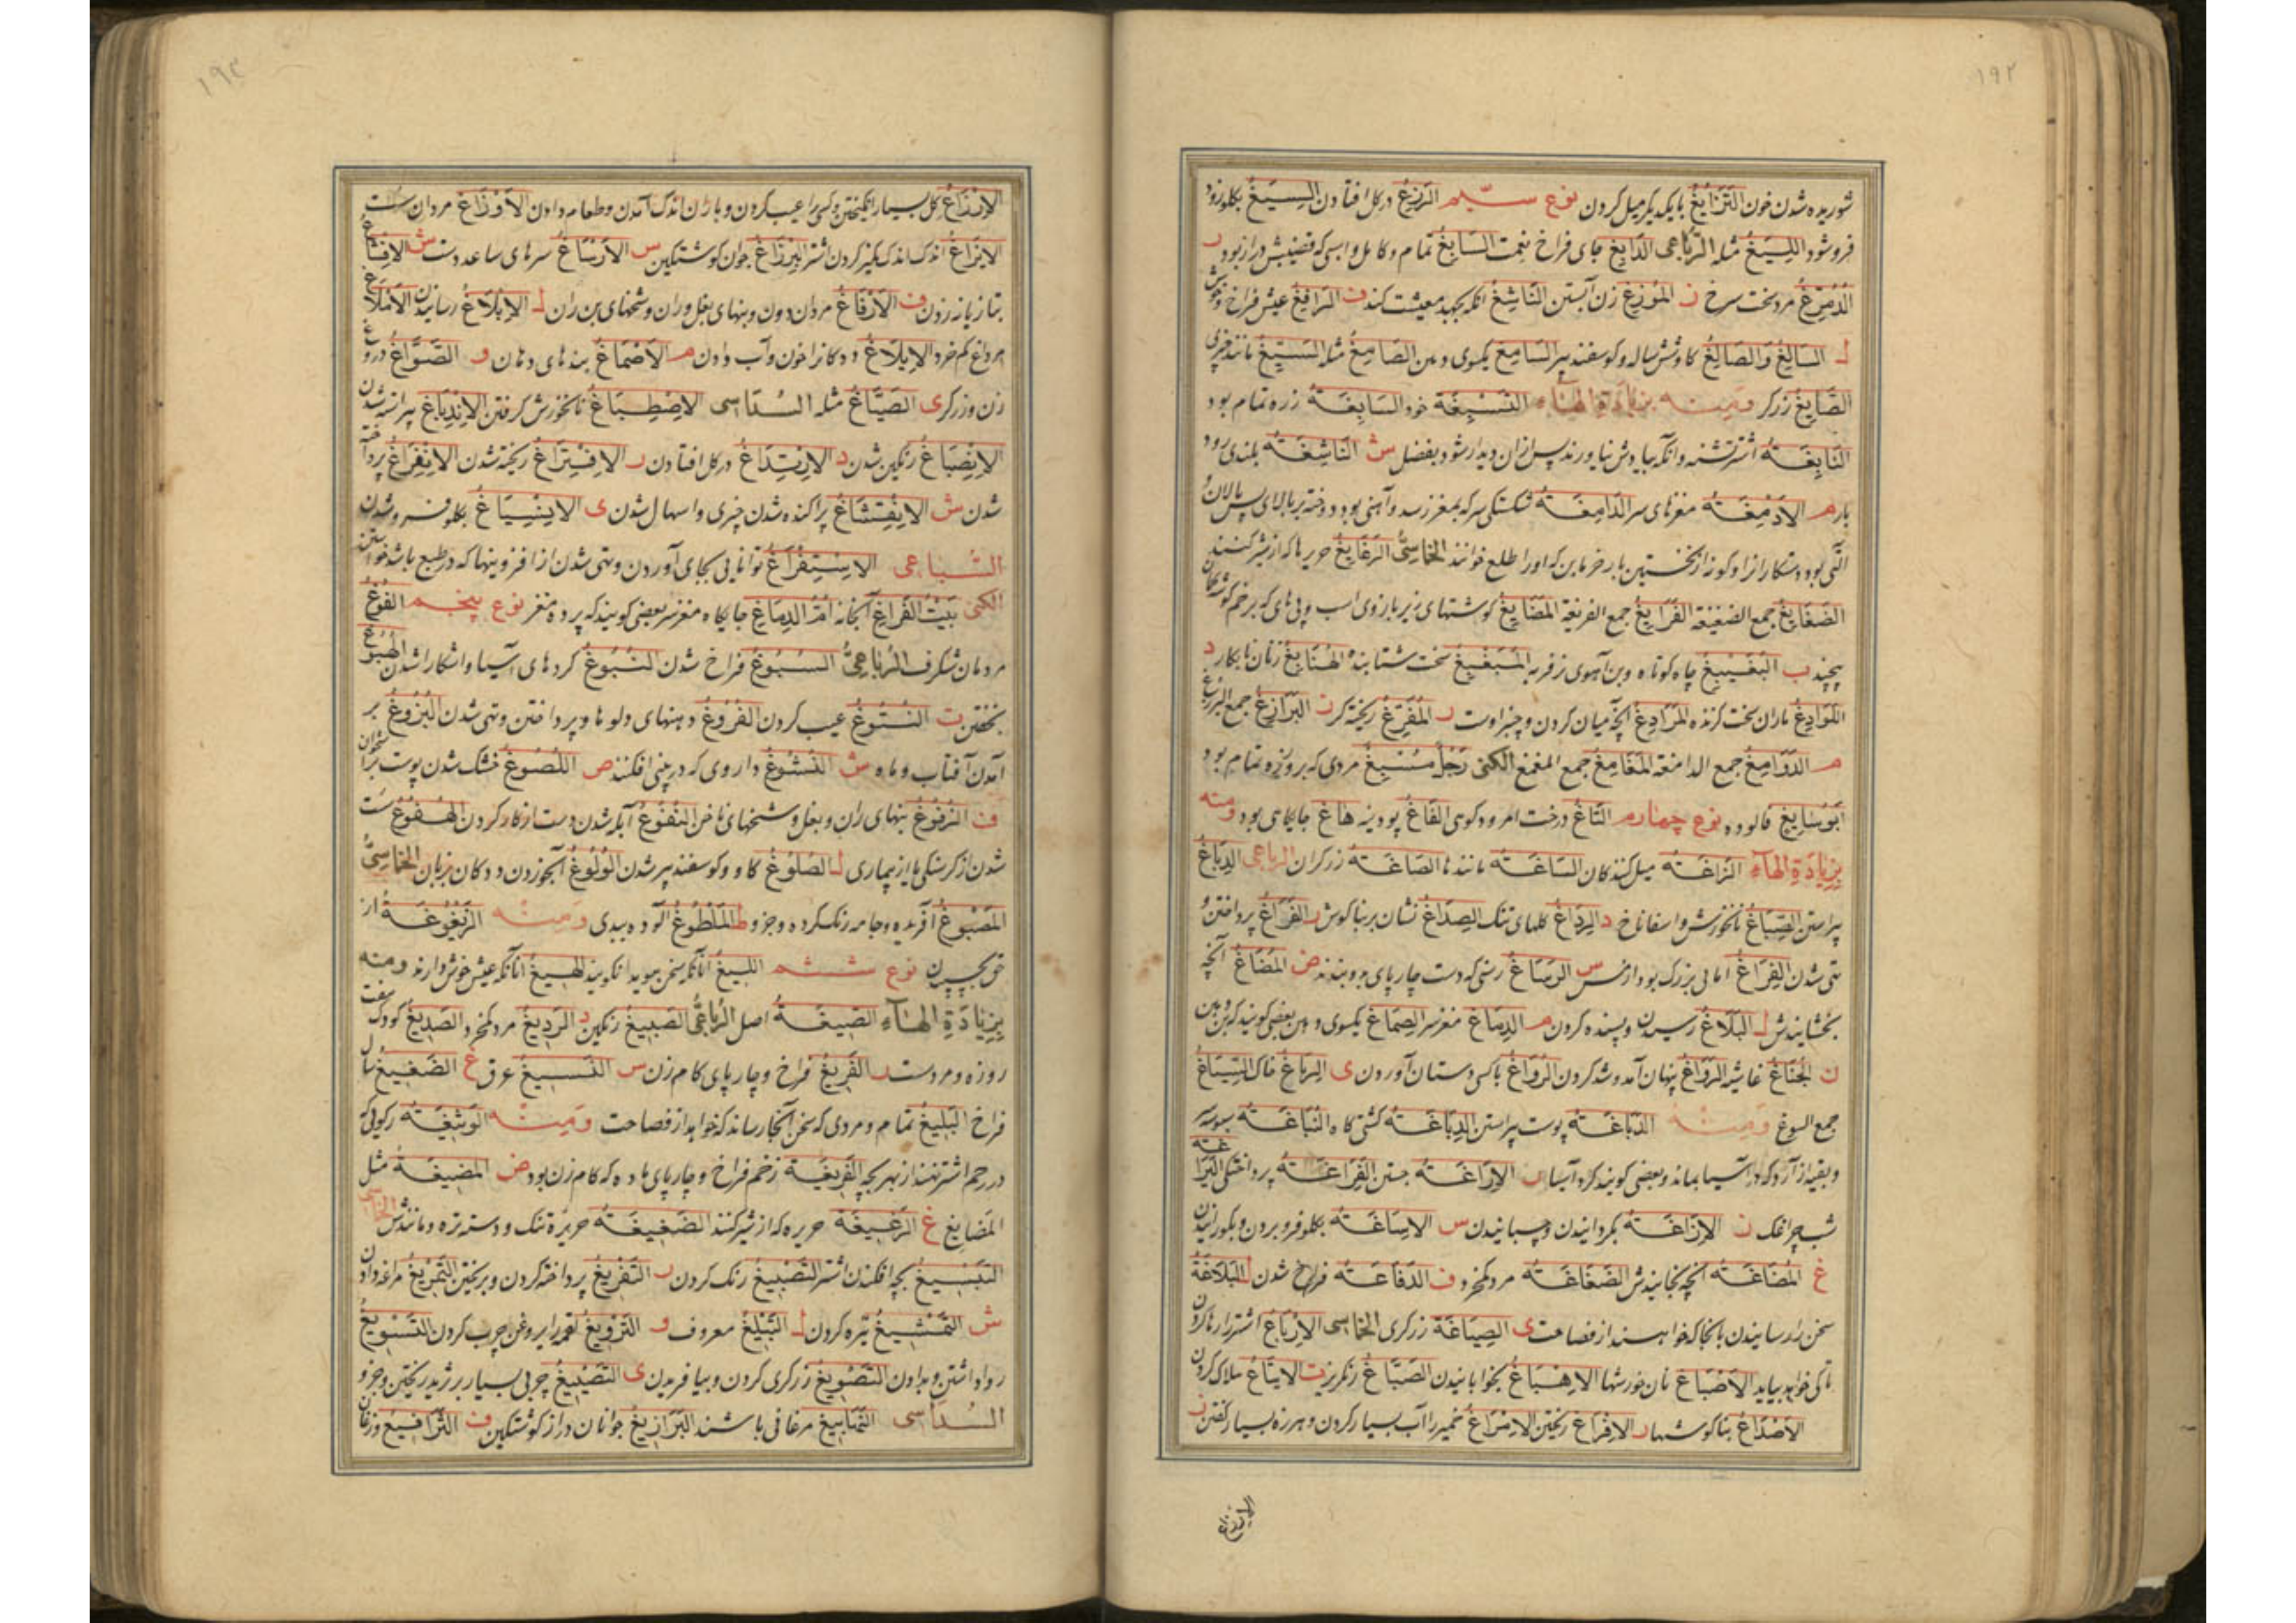 ١٩٢
شوریده شدن خون التَّزَایُغُ با یکدیگر میل کردن نوع سیم الرَّزِغُ در کل افتادن السَّیِّغُ بکلو زود
فروشود اللَّیِّغُ مثله الرباعی الدابغ جای فراخ نعمت السَّابِغُ تمام و کامل واسبی که قضیبش دراز بود ر
مرد سخت سرخ ز المُوزِغُ زن آبستن النَّاشِغُ انکه بجهد معیشت کند ف الرَّافِغُ عیش فراخ
ل السَّالِغُ وَالصَّالِغُ کاو شش ساله و کوسفند پیر السَّامِغُ یکسوی دهن الصَّامِغُ مثله السَّیِّغُ مانند چیزی
الصَّایِغُ زرکر ومنه بزیادة الهاء التَّسْبِغَة خود السَّابِغَة زره تمام بود
النَّابِغَة اشتر تشنه وانکه بیادش نیاورند پس ازان دیدار شود بفضل ش النَّاشِغَة بلندی رود
بار م الاَدْمِغَة مغزهای سر الدَّامِغَة شکستکی سر که بمغز رسد و آهنی بود دوخته بر بالای پس پالان و
آنی بود دستکارانرا و کوزاز نخستین بار خرما بن که اورا طلع خوانند الخماسیُّ الرَّغَایِغُ حریرها که از شیر کنند
الضَّغَایِغُ جمع الضغیغة الفَرَایِغُ جمع الفریغة المَضَایِغُ کوشتهای زیر بازوی اسب و پی های که بر خم
پیچند ب البُغَیْبِغُ چاه کوتاه وبن آهوی نر فربه المُبَغْبِغُ سخت شتابنده الهَنَابِغُ زنان نابکار د
الرَّوَادِغُ باران سخت کننده المَرَادِغُ آنچه میان کردن و چنبر اوست ر المُفْرِغُ ریخته کر ز البَرَازِغُ جمع البرزغ
م الدَّوَامِغُ جمع الدامغة المَغَامِغُ جمع المغمغ الکنی رَجُلٌ مُسْبِغٌ مردی که بروزره تمام بود
اَبُوسَایِغٍ فالوده نوع چهارم التَّاغُ درخت امرود کوهی الفَاغُ پودینه هَاغ جایکاهی بود ومنه
بِزِیَادَةِ الهَآءِ الزَّاغَة میل کنندکان السَّاغَة مانندها الصَّاغَة زرکران الرباعی الدِّبَاغُ
پیراستن الصِّبَاغُ نانخورش واسفاناخ د الرِّدَاغُ کلهای تنک الصِّدَاغُ نشان بر بناکوش ر الفَرَاغُ پرداختن و
تهی شدن الفِرَاغُ امالی بزرک بود از س الرِّسَاغُ رسنی که دست چارپای بدو بندند ض المُضَاغُ آنچه
بخشایندش ل البَلَاغُ رسیدن وبسنده کردن م الدِّمَاغُ مغز سر الصِّمَاغُ یکسوی دهن بعضی کویند که بن
ن الجُنَاغُ غاشیه الرَّوَاغُ پنهان آمد و شد کردن الرِّوَاغُ با کسی دستان آوردن ی الرِّیَاغُ خاک السِّیَاغُ
جمع السوغ ومنه الدَّبَاغَة پوست پیراستن الدِّبَاغَة کشتی کاه النُّبَاغَة سبوسه
وبقیه از آرد که در آسیا بماند وبعضی کویند کرد آسیا ر الاِرَاغَة جستن الفَرَاغَة پرداختکی
شب چراغک ز الاِزَاغَة بکردانیدن وچسبانیدن س الاِسَاغَة بکلو فرو بردن وبکورانیدن
غ المُضَاغَة آنچه بخایندش الضَّغَاغَة مرد کمخرد ف الرَّفَاغَة فراخ شدن ل البَلَاغَة
سخن را رسانیدن بانجا که خواهند از فصاحت ی الصِّیَاغَة زرکری الخماسی الاِرْبَاغُ اشترا رها کردن
تا کی خواهد بیاید الاَصْبَاغُ نان خورشها الاِهْبَاغُ بخوابانیدن الصَّبَّاغُ رنکرز ت الاِیتَاغُ هلاک کردن
الاَصْدَاغُ بناکوشها ر الاِفْرَاغُ ریختن الاِمْرَاغُ خمیر را آب بسیار کردن وهرزه بسیار کفتن ز
الارزاغ
١٩٣
الاِرْزَاغُ کل بسیار انکیختن وکسی را عیب کردن وباران اندک آمدن وطعام دادن الاَوْزَاغُ مردان سست
الاِیزَاغُ اندک اندک کمیز کردن اشتر البِرْزَاغُ جوان کوشتکین س الاَرْسَاغُ سرهای ساعد دست ش
بتازیانه زدن ف الاَرْفَاغُ مردان دون وبنهای بغل وران وشخهای بن ران ل الاِبْلَاغُ رسانیدن الاَمْلَاغُ
مرداغ کم خرد الاِیلَاغُ ددکانرا خون وآب دادن م الاَصْمَاغُ بندهای دهان و الصَّوَّاغُ دروغ
زن وزرکر ی الصَّیَّاغُ مثله السداسی الاِصْطِبَاغُ نانخورش کرفتن الاِنْدِبَاغُ پیراسته شدن
الاِنْصِبَاغُ رنکین شدن د الاِرْتِدَاغُ در کل افتادن ر الاِفْتِرَاغُ ریخته شدن الاِنْفِرَاغُ پرداخته
شدن ش الاِنْفِشَاغُ پراکنده شدن چیزی واسهال شدن ی الاِنْسِیَاغُ بکلو فروشدن
السباعی الاِسْتِفْرَاغُ توانایی بجای آوردن وتهی شدن از افزونیها که در طبع باشد خواستن
الکنی بَیْتُ الفَرَاغِ آبخانه اُمُّ الدِّمَاغِ جایکاه مغز سر بعضی کویند که پرده مغز نوع پنجم
مردمان شکرف الرُّبَاعِیُّ السُّبُوغُ فراخ شدن النُّبُوغُ کردهای آسیا واشکارا شدن الهُبُوغُ
بخفتن ت النُّتُوغُ عیب کردن الفُرُوغُ دهنهای دلوها وپرداختن وتهی شدن البُزُوغُ بر
آمدن آفتاب وماه ش النَّشُوغُ داروی که در بینی افکنند ص اللُّصُوغُ خشک شدن پوست بر استخوان
ف الرُّفُوغُ بنهای ران وبغل وشخهای ناخن النُّفُوغُ آبله شدن دست از کار کردن الهُفُوغُ سست
شدن از کرسنکی یا از بیماری ل الصُّلُوغُ کاو وکوسفند پیر شدن الوُلُوغُ آبخوردن ددکان بزبان الخماسیُّ
المَصْبُوغُ آفریده وجامه رنک کرده وجزو ط المَلْطُوغُ آلوده ببدی ومنه الزَّغْزُوغَة از
نوع ششم اللَّیِیغُ انانکه سخن پیدا نکویند الهَیِیغُ انانکه عیش خوش دارند ومنه
بِزِیَادَةِ الهَآءِ الصِّیغَة اصل الرُّبَاعِیُّ الصَّبِیغُ رنکین د الرَّدِیغُ مرد کمخرد الصَّدِیغُ کودک هفت
روزه ومرد سست ر الفَرِیغُ فراخ وچارپای کام زن س النَّسِیغُ عرق غ الضَّغِیغُ سال
فراخ البَلِیغُ تمام ومردی که سخن آنجا رساند که خواهد از فصاحت ومنه الوَثِیغَة رکوی که
در رحم اشتر نهند از بهر بچه الفَرِیغَة زخم فراخ وچارپای ماده که کام زن بود ض المَضِیغَة مثل
المَضَایِغِ غ الرَّغِیغَة حریره که از شیر کنند الضَّغِیغَة حریرهٔ تنک ودسته تره ومانندش الخماسی
التَّسْبِیغُ بچه افکندن اشتر التَّصْبِیغُ رنک کردن ر التَّفْرِیغُ پرداخته کردن وبریختن التَّمْرِیغُ مراغه دادن
ش التَّمْشِیغُ تیره کردن ل التَّبْلِیغُ معروف و التَّرْوِیغُ لقمه را بروغن چرب کردن التَّسْوِیغُ
روا داشتن وبدادن التَّصْوِیغُ زرکری کردن وبیافریدن ی التَّصْیِیغُ چربی بسیار بر ثرید ریختن وجزو
السداسی النَّمَابِیغُ مرغانی باشند البَرَازِیغُ جوانان دراز کوشتکین ف